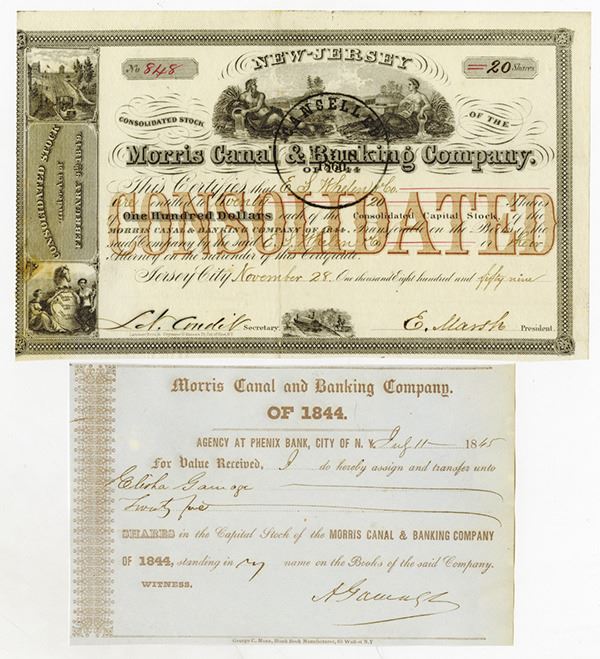 NEW-JERSEY
No 848
20 Shares
CONSOLIDATED STOCK
OF THE
CANSELLED
Morris Canal & Banking Company.
OF 1844
CONSOLIDATED STOCK
FEBRUARY
This Certifies that E. & Co.
Shares
One Hundred Dollars each of the Consolidated Capital Stock, of the
MORRIS CANAL & BANKING COMPANY OF 1844. Transferable on the Books of the
said Company by the said
Attorney on the surrender of this Certificate.
CONSOLIDATED
Jersey City November 28. One thousand Eight hundred and fifty nine
Secretary.
E. Marsh President.
Morris Canal and Banking Company.
OF 1844.
AGENCY AT PHENIX BANK, CITY OF N. Y. July 11 1845
For Value Received, I do hereby assign and transfer unto
Elisha Gamage
Twenty five
SHARES in the Capital Stock of the MORRIS CANAL & BANKING COMPANY
OF 1844, standing in my name on the Books of the said Company.
WITNESS.
A Gamage
George C. Mann, Blank Book Manufacturer, 65 Wall-st N.Y